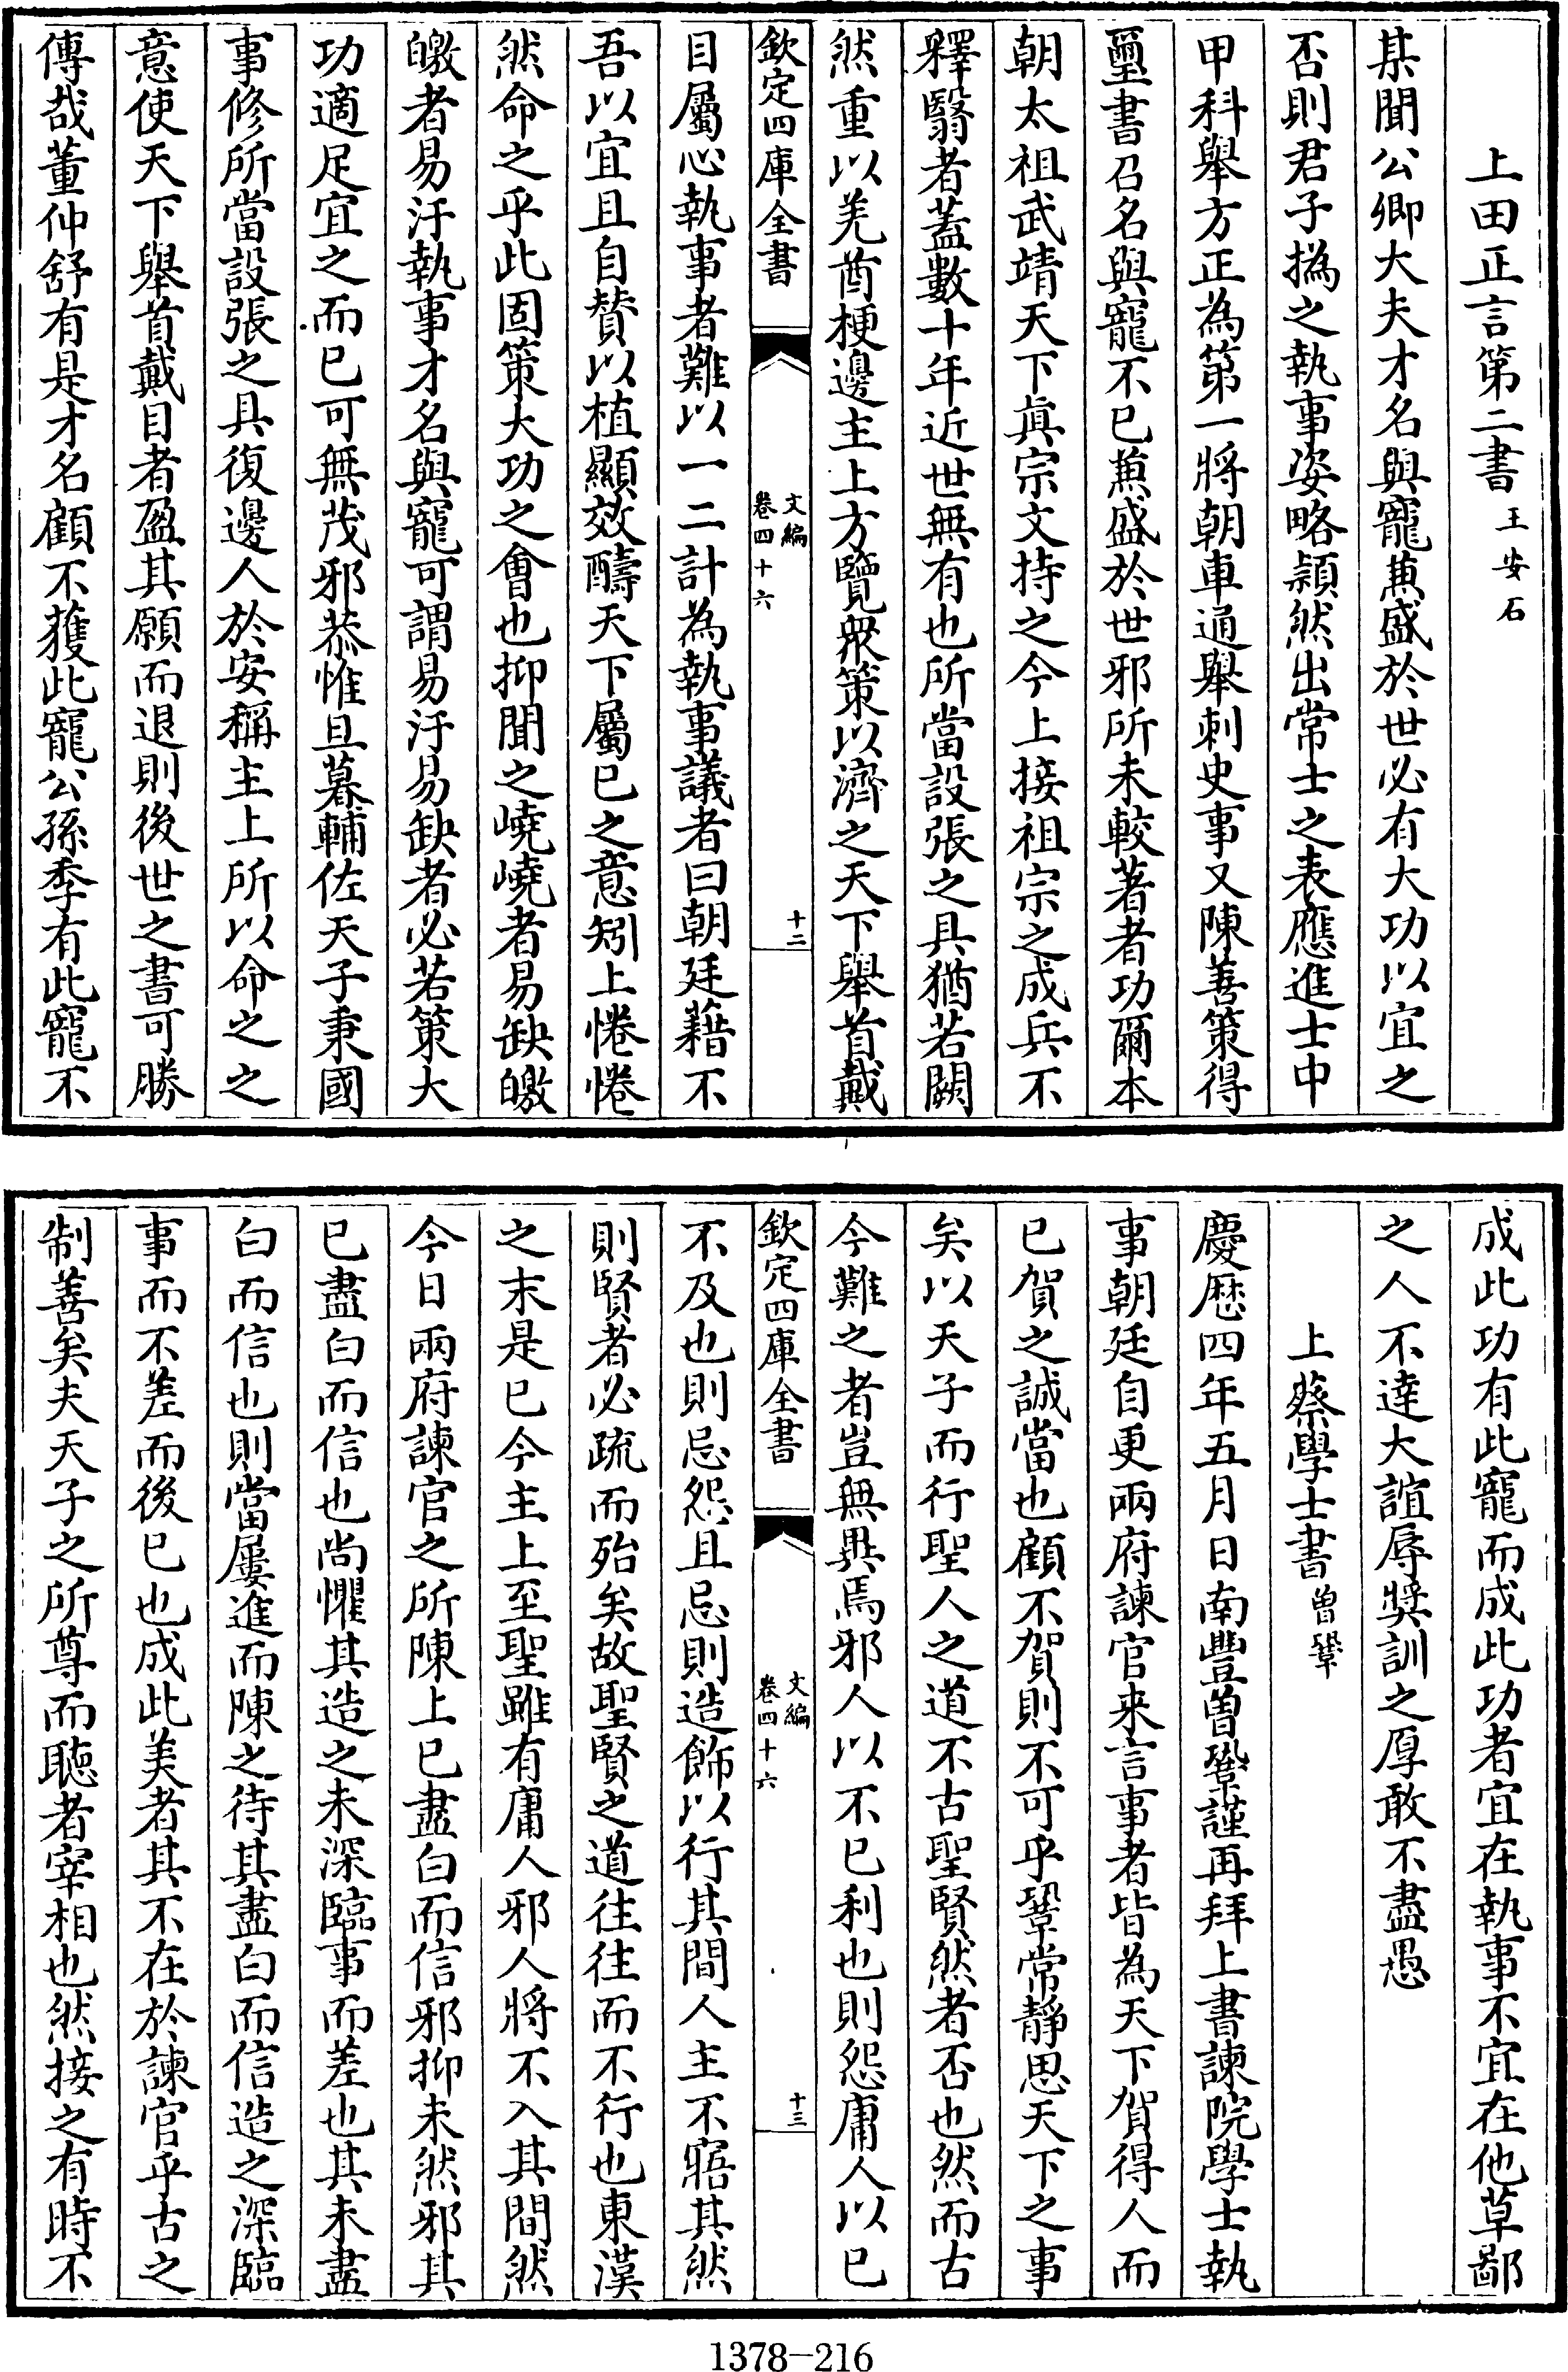 上田正言第二書王安石
某聞公卿大夫才名與寵兼盛於世必有大功以宜之
否則君子撝之執事姿略頴然出常士之表應進士中
甲科舉方正為第一將朝車通舉刺史事又陳善策得
璽書召名與寵不已兼盛於世邪所未較著者功爾本
朝太祖武靖天下真宗文持之今上接祖宗之成兵不
釋翳者蓋數十年近世無有也所當設張之具猶若闕
然重以羌酋梗邊主上方覽衆策以濟之天下舉首戴
欽定四庫全書
文編
卷四十六
十二
目屬心執事者難以一二計為執事議者曰朝廷藉不
吾以宜且自贊以植顯效醻天下屬已之意矧上惓惓
然命之乎此固策大功之會也抑聞之嶢嶢者易缺皦
皦者易汙執事才名與寵可謂易汙易缺者必若策大
功適足宜之而已可無茂邪恭惟旦暮輔佐天子秉國
事修所當設張之具復邊人於安稱主上所以命之之
意使天下舉首戴目者盈其願而退則後世之書可勝
傳哉董仲舒有是才名顧不獲此寵公孫季有此寵不
成此功有此寵而成此功者宜在執事不宜在他草鄙
之人不達大誼辱奬訓之厚敢不盡愚
上蔡學士書曾鞏
慶厯四年五月日南豐曽鞏謹再拜上書諫院學士執
事朝廷自更兩府諫官来言事者皆為天下賀得人而
已賀之誠當也顧不賀則不可乎鞏常靜思天下之事
矣以天子而行聖人之道不古聖賢然者否也然而古
今難之者豈無異焉邪人以不已利也則怨庸人以已
欽定四庫全書
文編
卷四十六
十三
不及也則忌怨且忌則造飾以行其間人主不寤其然
則賢者必疏而殆矣故聖賢之道往往而不行也東漢
之末是已今主上至聖雖有庸人邪人將不入其間然
今日兩府諫官之所陳上已盡白而信邪抑未然邪其
已盡白而信也尚懼其造之未深臨事而差也其未盡
白而信也則當屢進而陳之待其盡白而信造之深臨
事而不差而後已也成此美者其不在於諫官乎古之
制善矣夫天子之所尊而聽者宰相也然接之有時不
1378-216